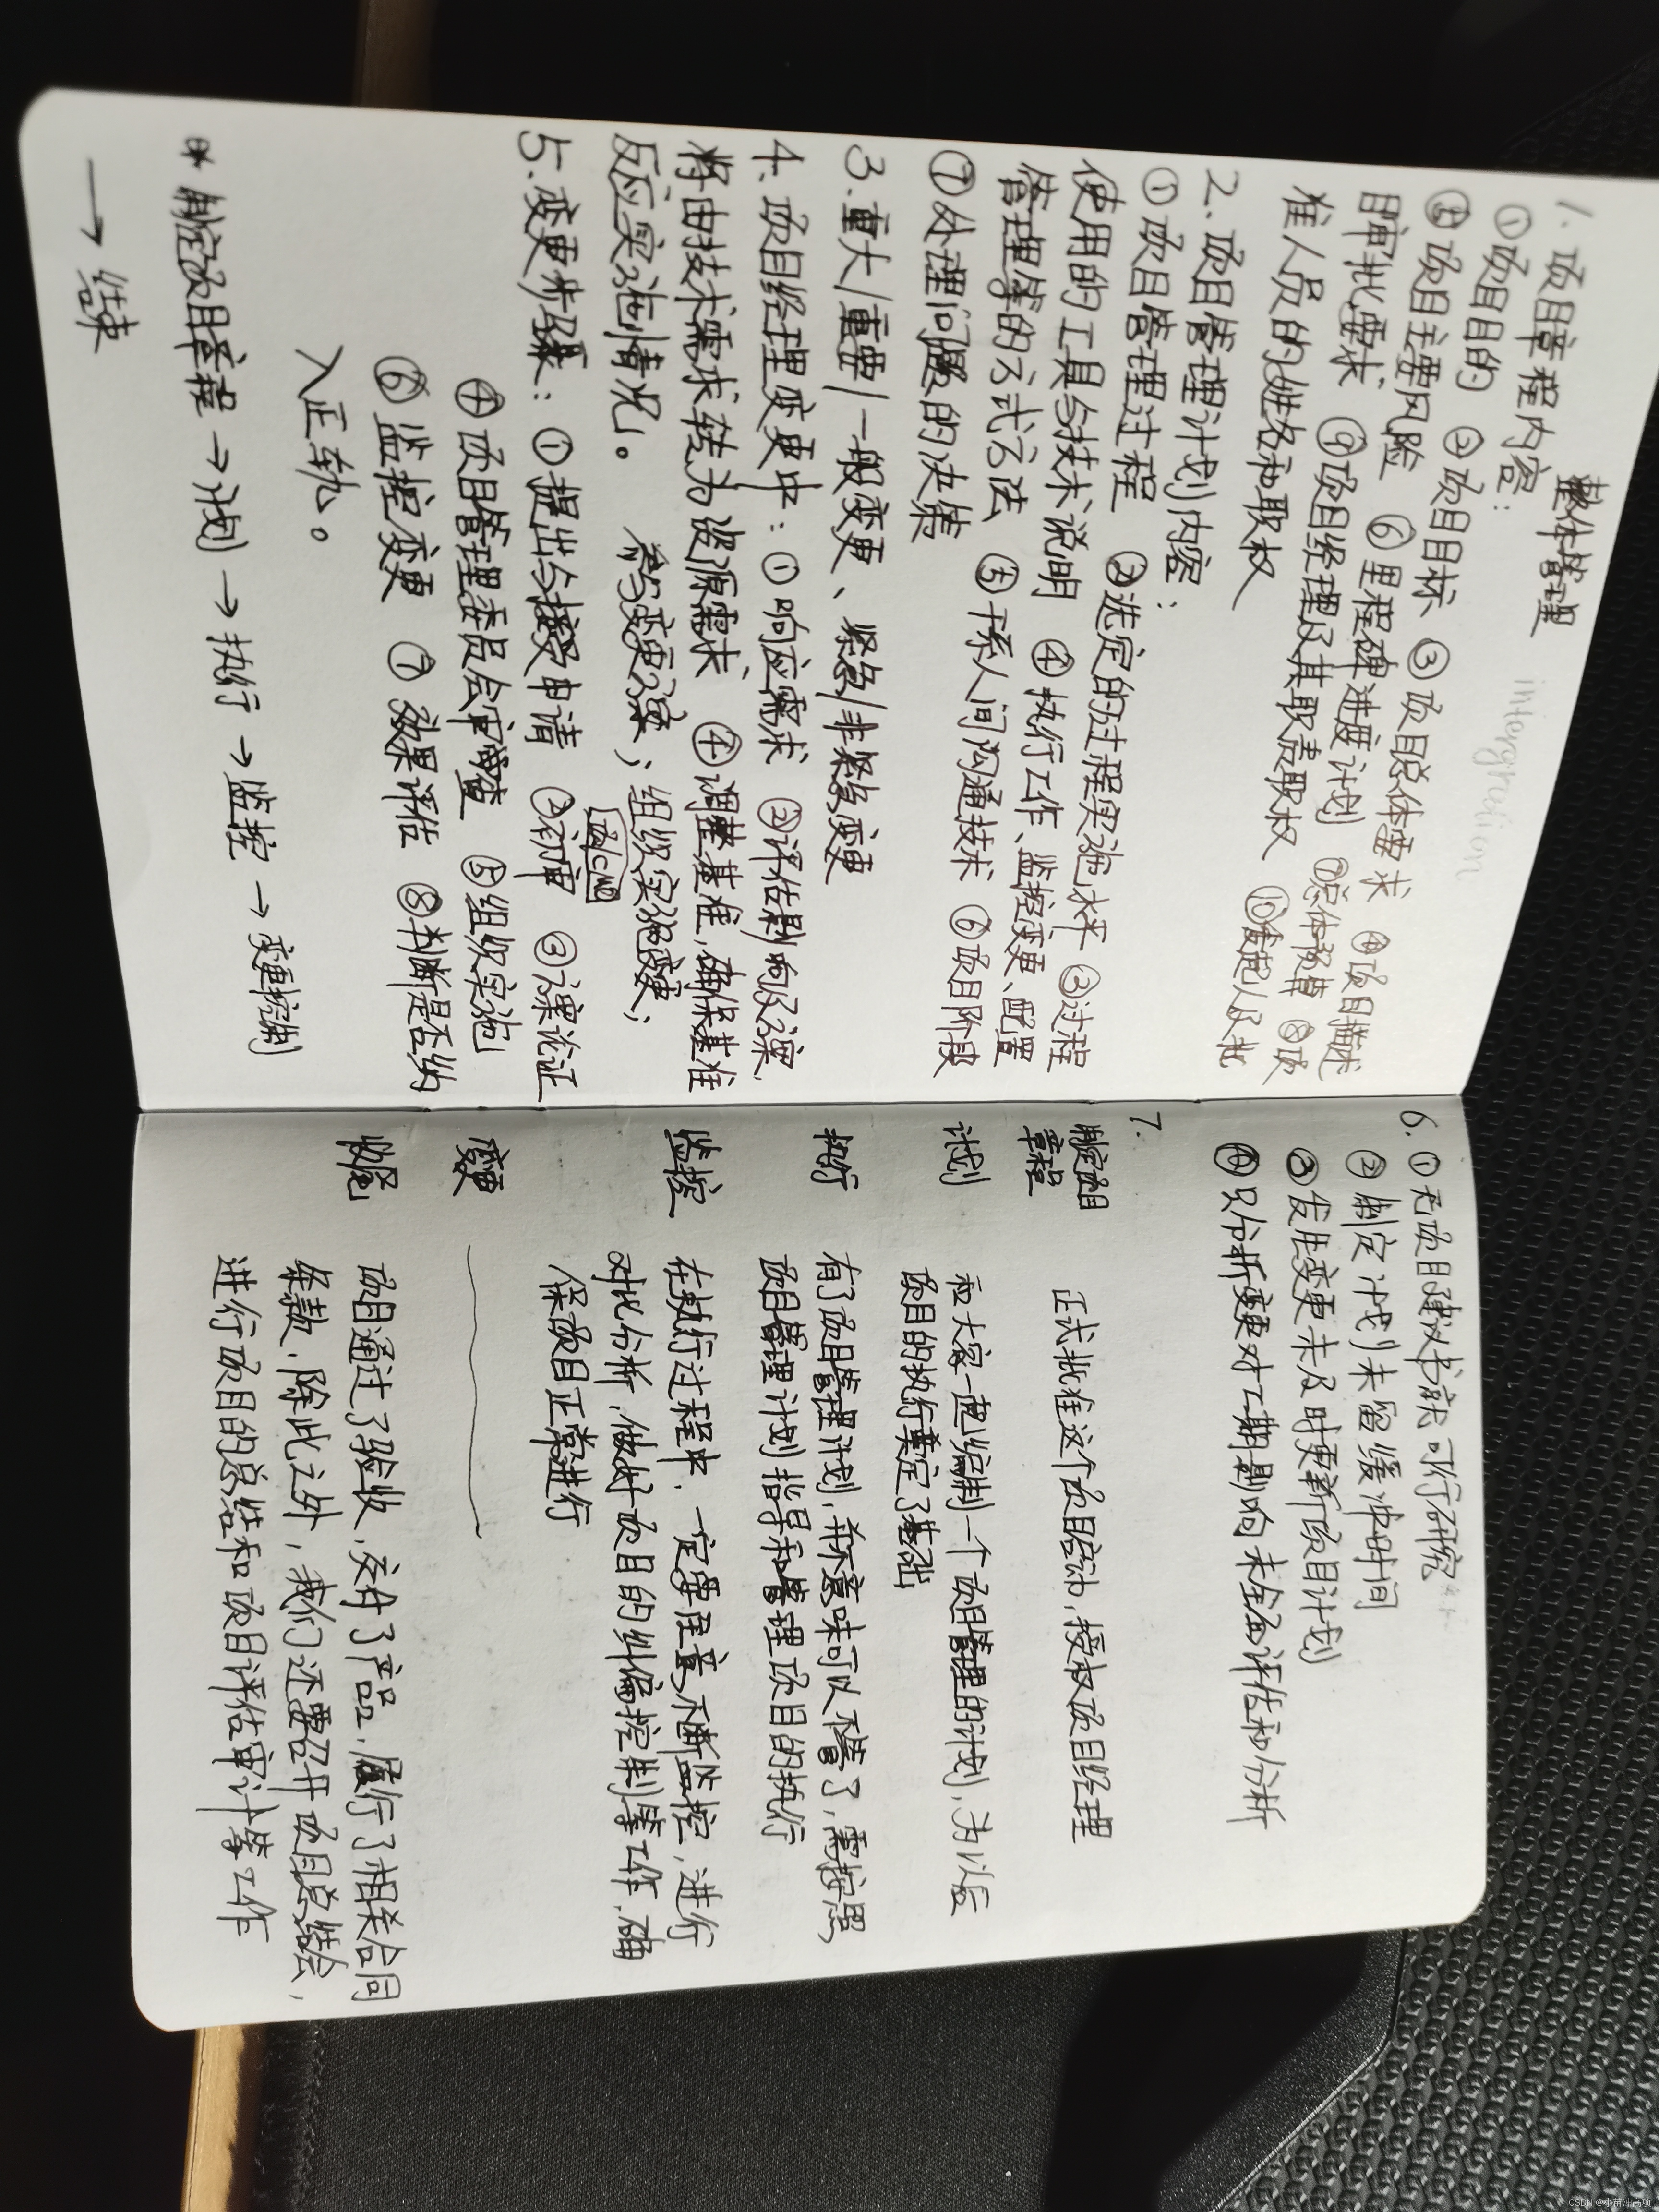 整体管理 intergration
1. 项目章程内容:
①项目目的 ②项目目标 ③项目总体要求 ④项目描述
⑤项目主要风险 ⑥里程碑进度计划 ⑦总体预算 ⑧项
目审批要求 ⑨项目经理及其职责职权 ⑩发起人及批
准人员的姓名和职权
2. 项目管理计划内容:
①项目管理过程 ②选定的过程实施水平 ③过程
使用的工具与技术说明 ④执行工作、监控变更、配置
管理等的方式方法 ⑤干系人间沟通技术 ⑥项目阶段
⑦处理问题的决策
3. 重大/重要/一般变更、紧急/非紧急变更
4. 项目经理变更中: ①响应需求 ②评估影响及方案,
将由技术需求转为资源需求 ④调整基准,确保基准
反应实施情况。 参与变更方案; 组织实施变更;
5. 变更步骤: ①提出与接受申请 ②初审 ③方案论证
④项目管理委员会审查 ⑤组织实施
⑥监控变更 ⑦效果评估 ⑧判断是否纳
入正轨。
* 制定项目章程 → 计划 → 执行 → 监控 → 变更控制
→ 结束
6. ①无项目建议书就可行研究
②制定计划未留缓冲时间
③发生变更未及时更新项目计划
④只分析变更对工期影响 未全面评估和分析
7.
制定项目章程 正式批准这个项目启动,授权项目经理
计划 和大家一起编制一个项目管理的计划,为以后
项目的执行奠定了基础
执行 有了项目管理计划,并不意味可以不管了,需按照
项目管理计划指导和管理项目的执行
监控 在执行过程中,一定要注意不断监控,进行
对比分析,做好项目的纠偏控制等工作,确
保项目正常进行
变更
收尾 项目通过了验收,交付了产品,履行了相关合同
条款,除此之外,我们还要召开项目总结会,
进行项目的总结和项目评估审计等工作
CSDN @小苗冲高项